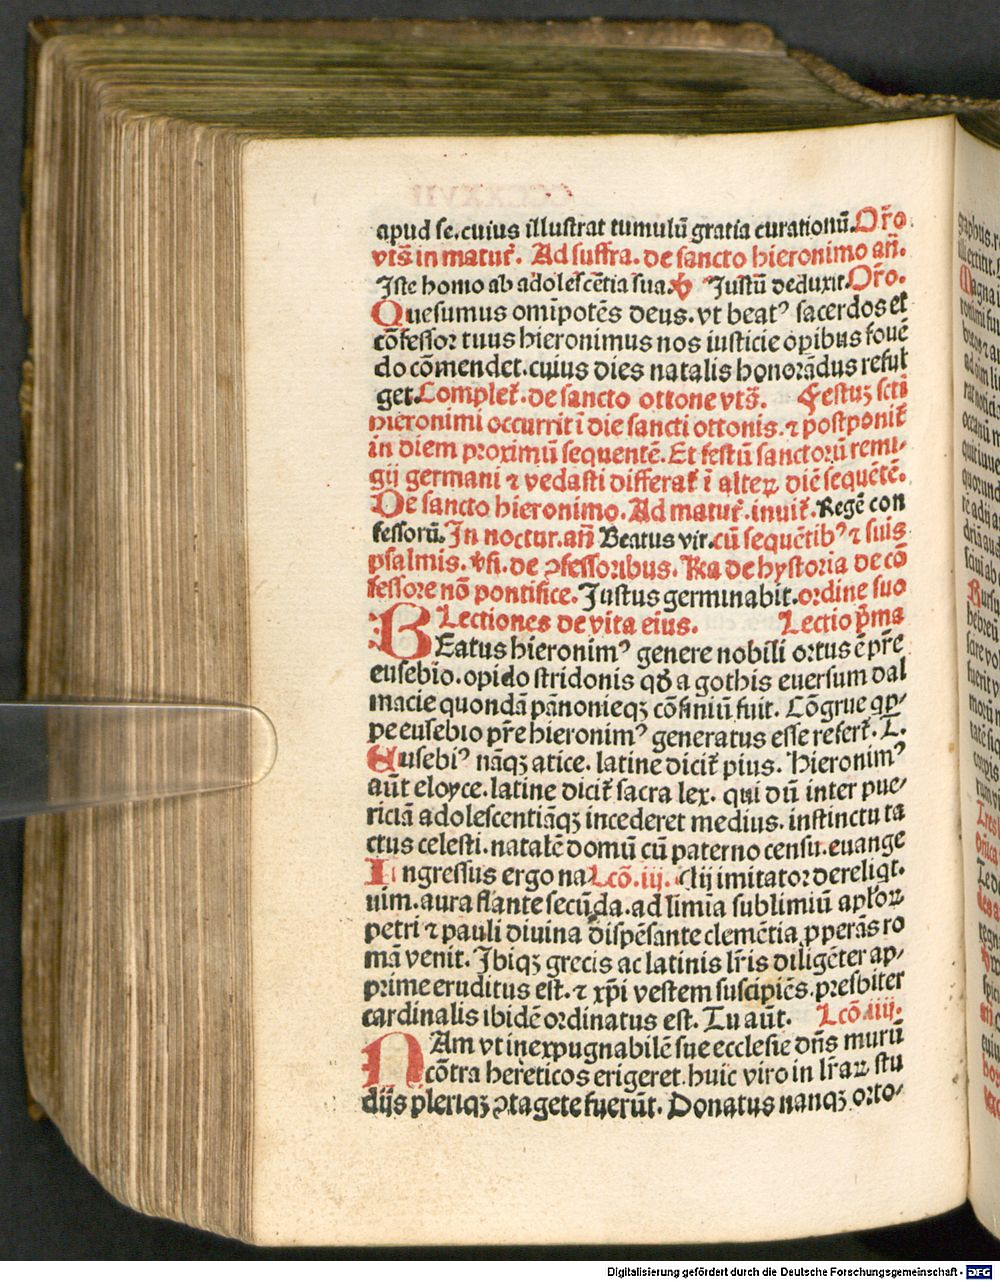 apud se.cuius illustrat tumulū gratia curationū.Or̄o
vts̄ in matur̄. Ad suffra. de sancto hieronimo an̄.
Iste homo ab adolescētia sua. Iustū deduxit.Or̄o.
Quesumus omīpotēs deus.vt beatꝰ sacerdos et
cōfessor tuus hieronimus nos iusticie opibus fouē
do cōmendet.cuius dies natalis honorādus reful
get.Complet̄.de sancto ottone vts̄. Festuꝫ scti
hieronimi occurrit ī die sancti ottonis.⁊ postponit̄
in diem proximū sequentē. Et festū sanctorū remi-
gij germani ⁊ vedasti differat̄ ī alteꝝ diē sequētē.
De sancto hieronimo. Ad matur̄.inuit̄.Regē con
fessorū. In noctur.an̄ Beatus vir.cū sequētibꝰ ⁊ suis
psalmis. v̄si. de ↄfessoribus. Ra de hystoria de cō
fessore nō pontifice. Justus germinabit.ordine suo
Lectiones de vita eius. Lectio p̄ma
BEatus hieronimꝰ genere nobili ortus ē pr̄e
eusebio.opido stridonis qd̄ a gothis euersum dal
macie quondā pānonieqꝫ cōfiniū fuit. Cōgrue qp-
pe eusebio pr̄e hieronimꝰ generatus esse refert̄. L.
Eusebiꝰ nāqꝫ atice. latine dicit̄ pius. Hieronimꝰ
aūt eloyce.latine dicit̄ sacra lex. qui dū inter pue-
riciā adolescentiāqꝫ incederet medius. instinctu ta
ctus celesti.natalē domū cū paterno censu.euange
Ingressus ergo na Lcō.iij. lij imitator dereliqt.
uim.aura flante secūda.ad limīa sublimiū aploꝝ
petri ⁊ pauli diuina dispēsante clemētia ꝓperās ro
mā venit. Ibiqꝫ grecis ac latinis lr̄is diligēter ap-
prime eruditus est.⁊ xp̄i vestem suscipiēs.presbiter
cardinalis ibidē ordinatus est. Tu aūt. Lcō.iiij.
NAm vt inexpugnabilē sue ecclesie dn̄s murū
cōtra hereticos erigeret.huic viro in lr̄aꝝ stu
dijs pleriqꝫ ↄtagete fuerūt. Donatus nanqꝫ orto-
Digitalisierung gefördert durch die Deutsche Forschungsgemeinschaft - DFG